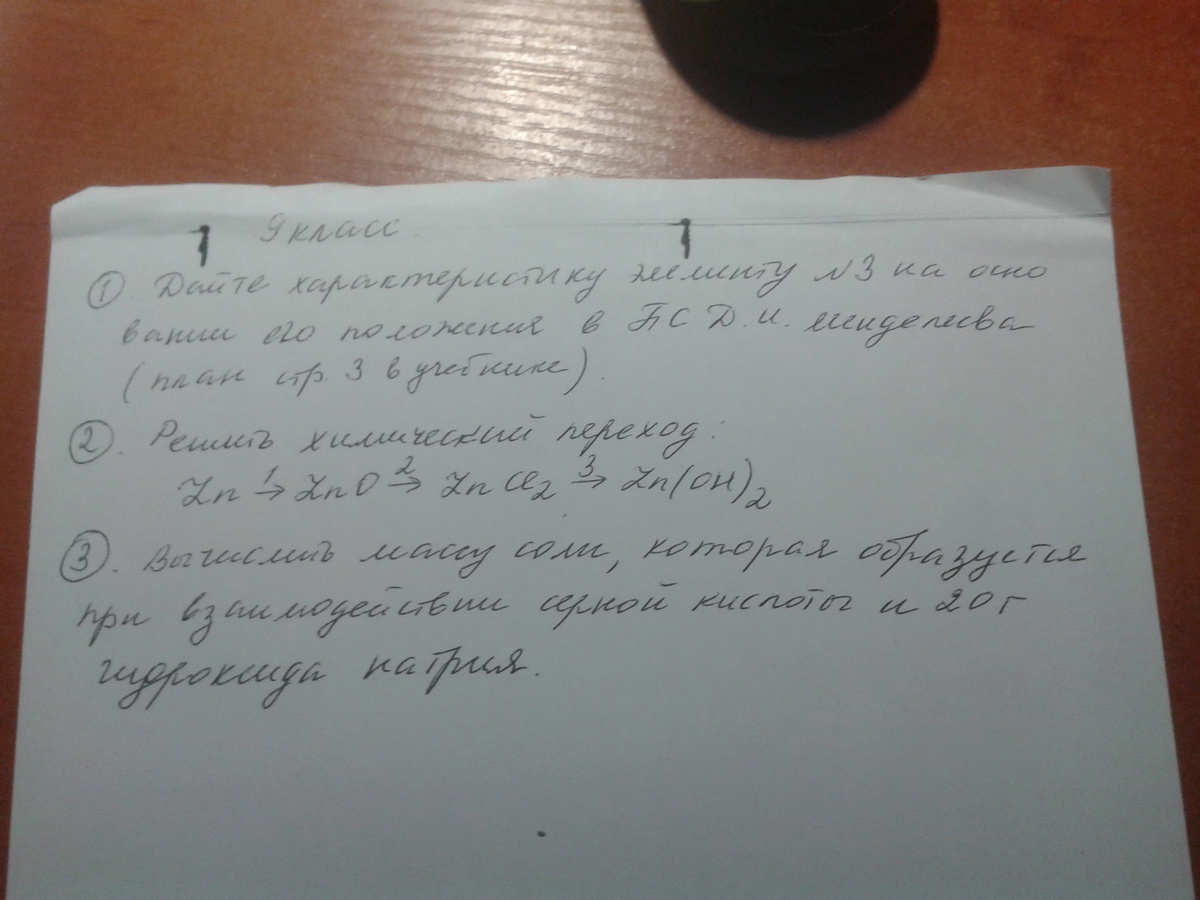 9 класс.
① Дайте характеристику элементу N3 на осно
вании его положения в ПС Д.И. Менделеева
(план стр. 3 в учебнике).
②. Решить химический переход:
Zn 1→ ZnO 2→ ZnCl2 3→ Zn(OH)2
③. Вычислить массу соли, которая образуется
при взаимодействии серной кислоты и 20 г
гидроксида натрия.